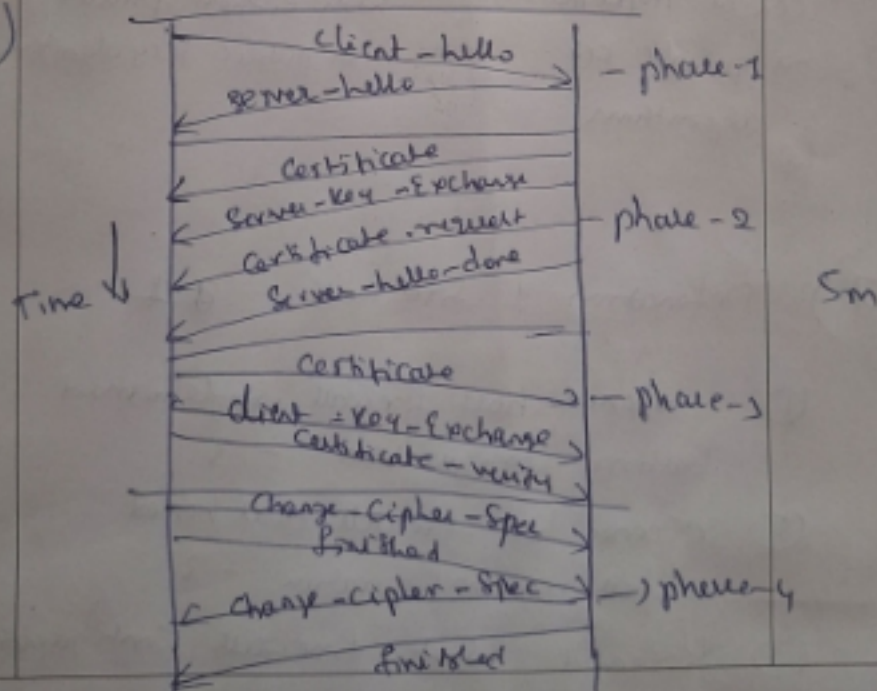 )
client-hello
- phase-1
server-hello
Certificate
Server-key-Exchange
- phase-2
Certificate.request
Server-hello-done
Time
5m
Certificate
- phase-3
client-key-Exchange
Certificate-verify
Change-Cipher-Spec
finished
Change-cipher-Spec
phase-4
finished